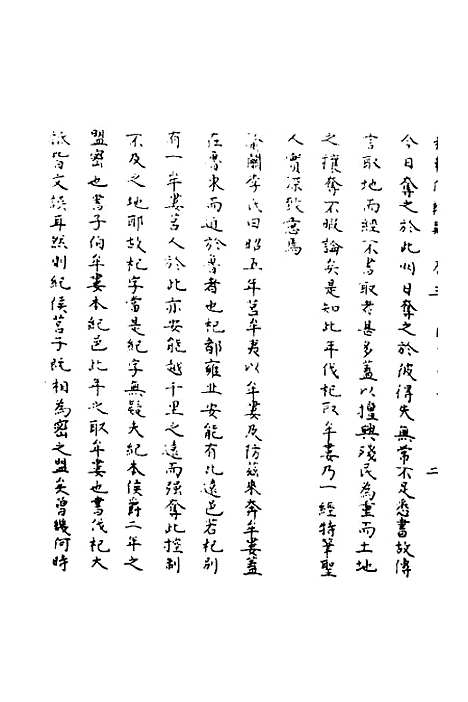 卷三 二
今日奪之於此明日奪之於彼得失無常不足悉書故傳
言取地而經不書取者甚多蓋以擅興殘民為重而土地
之攘奪不暇論矣是知此年伐杞取牟婁乃一經特筆聖
人實深致意焉
李氏曰昭五年莒牟夷以牟婁及防茲來奔牟婁蓋
在魯東而近於魯者也杞都雍丘安能有此遠邑若杞别
有一牟婁莒人於此亦安能越千里之遠而强奪此控制
不及之地耶故杞字當是紀字無疑夫紀本侯爵二年之
盟密也書子伯牟婁本紀邑此年之取牟婁也書伐杞大
派皆文誤耳然則紀侯莒子既相為密之盟矣曾幾何時